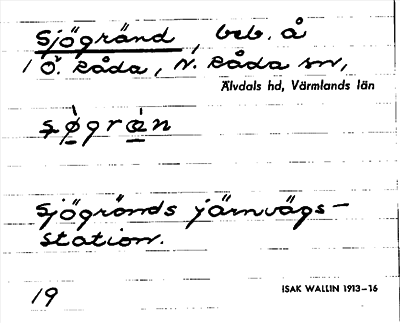 Sjögränd, beb. å
Ö. Råda, N. Råda sn,
Älvdals hd, Värmlands län
Sjögränds järnvägs-
station.
19
ISAK WALLIN 1913–16